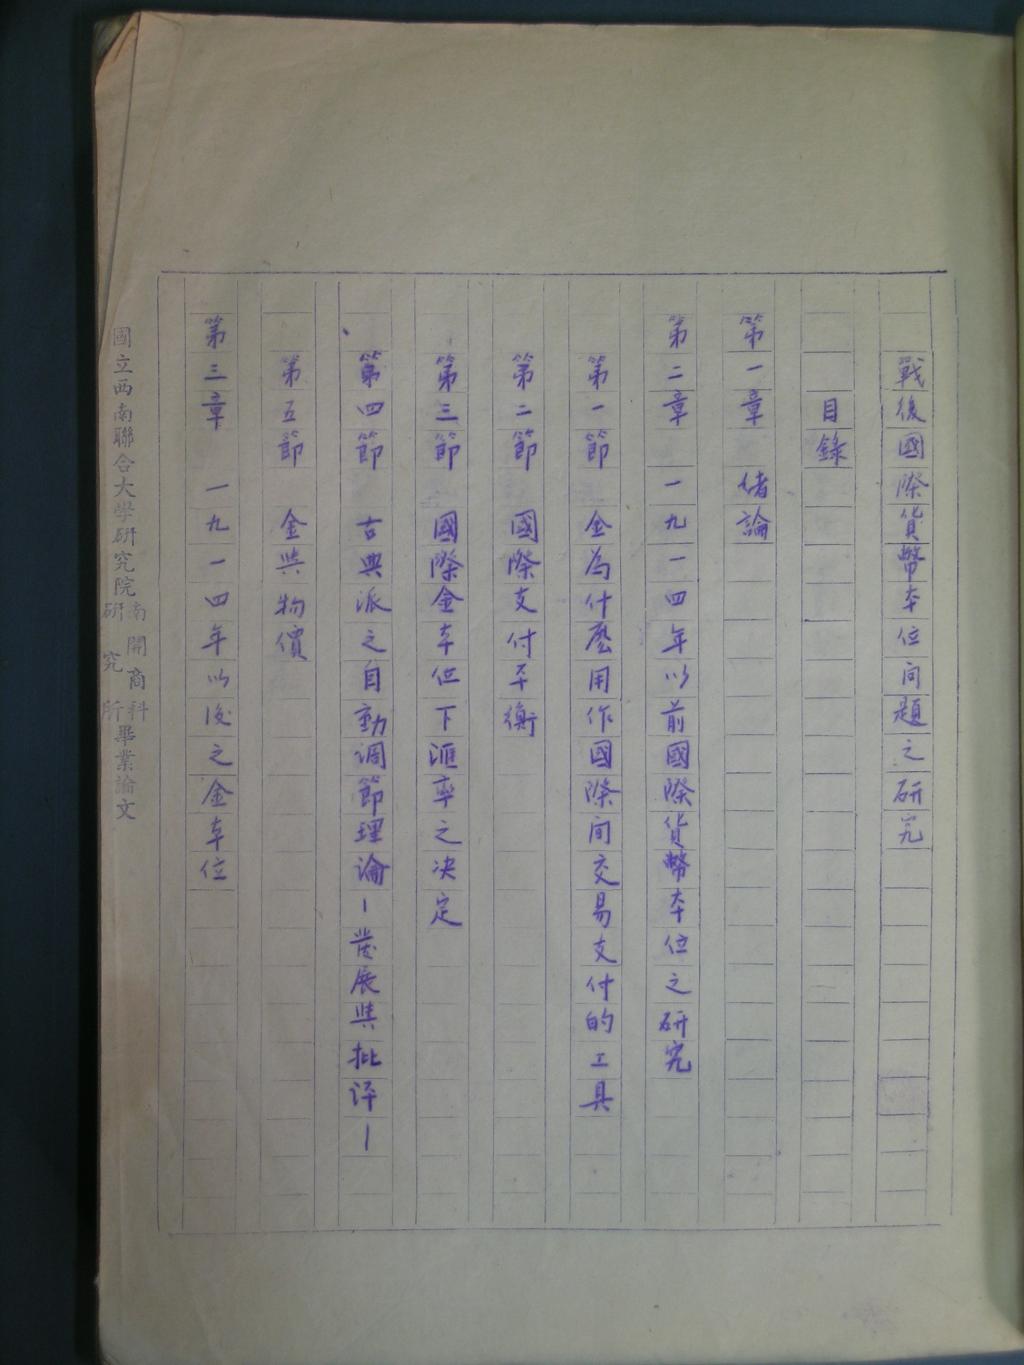 戰後國際貨幣本位问題之研究
目錄
第一章 绪論
第二章 一九一四年以前國際貨幣本位之研究
第一節 金為什麼用作國際间交易支付的工具
第二節 國際支付平衡
第三節 國際金本位下滙率之决定
第四節 古典派之自動调節理論—發展與批评—
第五節 金與物價
第三章 一九一四年以後之金本位
國立西南聯合大學研究院南開商科研究所畢業論文